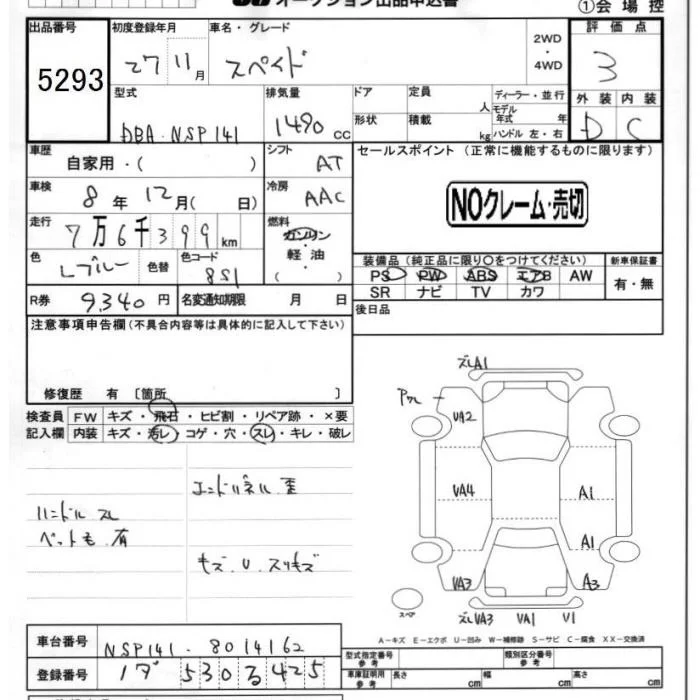 オークション出品申込書
①会場控
出品番号 初度登録年月 車名・グレード 評価点
5293 27 11月 スペイド 2WD・4WD 3
型式 排気量 ドア 定員 人 ディーラー・並行 外装 内装
DBA-NSP141 1490cc 形状 積載 kg モデル年式 年 ハンドル 左・右 D C
車歴 自家用・( ) シフト AT セールスポイント (正常に機能するものに限ります)
車検 8年12月( 日) 冷房 AAC NOクレーム・売切
走行 7万6千399km 燃料 ガソリン・軽油・( )
装備品 (純正品に限り○をつけてください) 新車保証書
色 Lブルー 色替 色コード 8S1 PS PW ABS エアB AW 有・無
SR ナビ TV カワ
R券 9,340円 名変通知期限 月 日 後日品
注意事項申告欄 (不具合内容等は具体的に記入して下さい)
修復歴 有 [箇所 ]
検査員 FW キズ・飛石・ヒビ割・リペア跡・×要
記入欄 内装 キズ・汚レ・コゲ・穴・スレ・キレ・破レ
エンドパネル 歪
ハンドル スレ
ペット毛 有
キズ.U.スリキズ
ズレA1
Pクレ
VA2
VA4 A1
A1
VA3 A3
スペア ズレVA3 VA1 V1
A−キズ E−エクボ U−凹み W−補修跡 S−サビ C−腐食 XX−交換済
車台番号 NSP141-8014162
型式指定番号 参考 類別区分番号 参考
登録番号 530 る 425
車庫証明用 参考 長さ cm 幅 cm 高さ cm